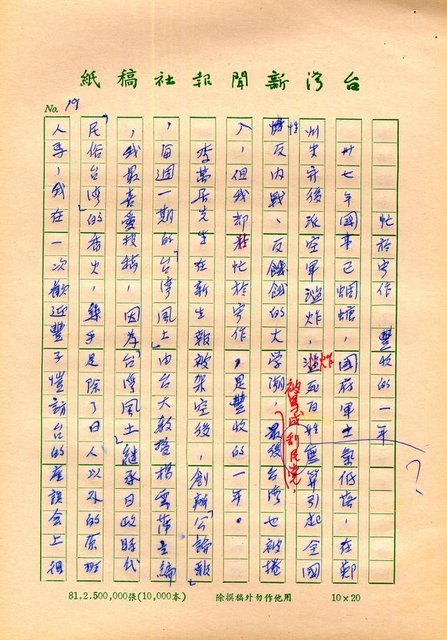 台灣新聞報社稿紙
No. 19
忙於寫作 豐收的一年
卅七年國事已蜩螗,國府軍士氣低落,在鄭
州失守後派空軍濫炸,炸死百姓無算引起全國
性反內戰、反饑餓的大學潮,最後台灣也被捲
被罵成刮民党,
入,但我卻忙於寫作,是豐收的一年。
李萬居先生在新生報被架空後,創辦「公論報」
,每週一期的「台灣風土」由台大教授楊雲萍主編
,我最喜愛投稿,因為「台灣風土」繼承日政時代
「民俗台灣」的香火,幾乎是除了日人以外的原班
人馬,我在一次歡迎豐子愷訪台的座談會上
?
81.2.500,000張(10,000本) 除撰稿外勿作他用 10×20